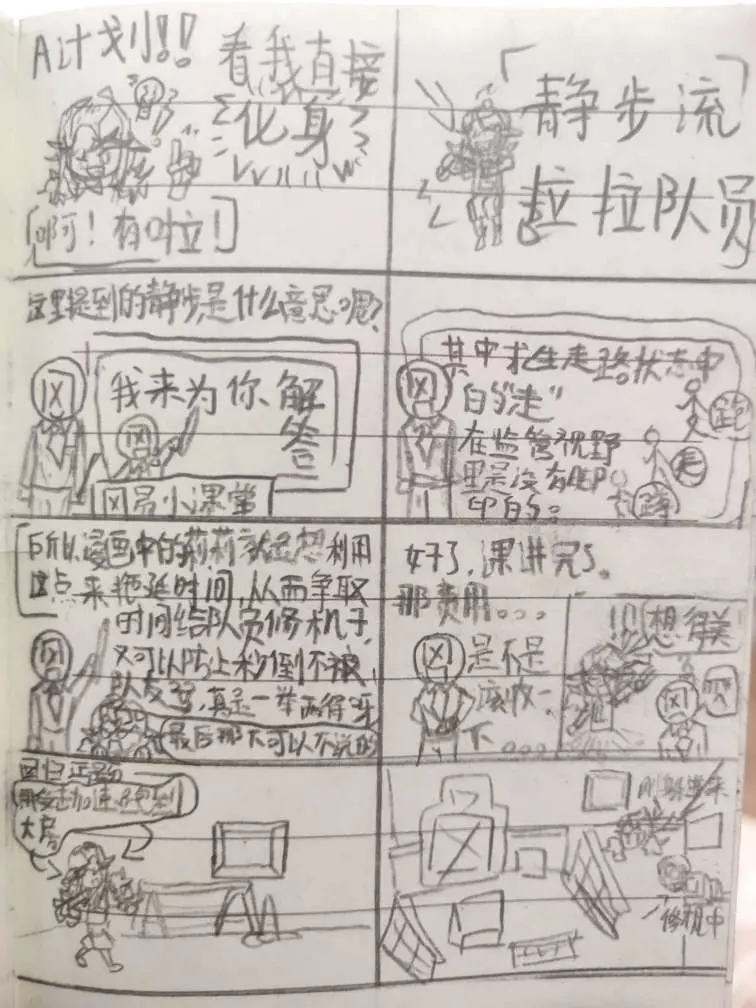 A计划!!
看我直接
化身
啊!有啦!
「静步流」
拉拉队员
这里提到的静步是什么意思呢?
囚
我来为你解
答
囚
囚易小课堂
其中求生走路状态中
的“走”
在监管视野
里是没有脚
印的。
囚
跑
走
蹲
所以漫画中的莉莉就是想利用
这点来拖延时间,从而争取
时间给队员修机子,
又可以防止秒倒不被
队友骂,真是一举两得呀
囚
最后那下可以不说的
好了,课讲完了。
那费用。。。
是不是
该收一
下
囚
!!!想得美
囚
回归正题
用板子加速跑到
大房
刚躲进来
修机中